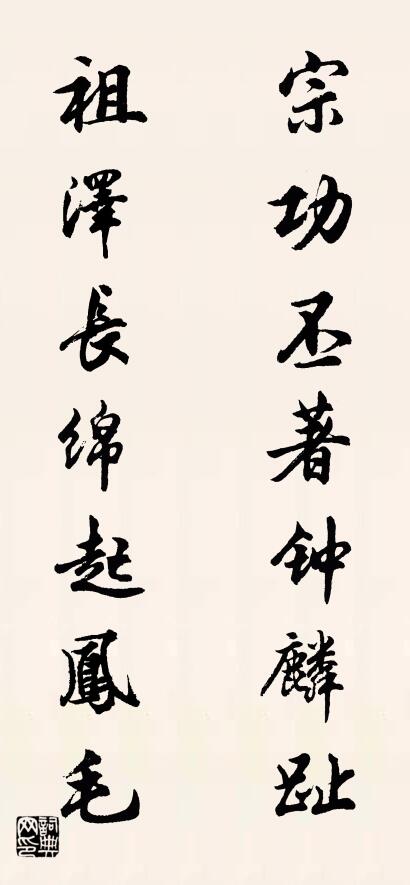 宗功丕著钟麟趾
祖澤長绵起鳳毛
詞典網印